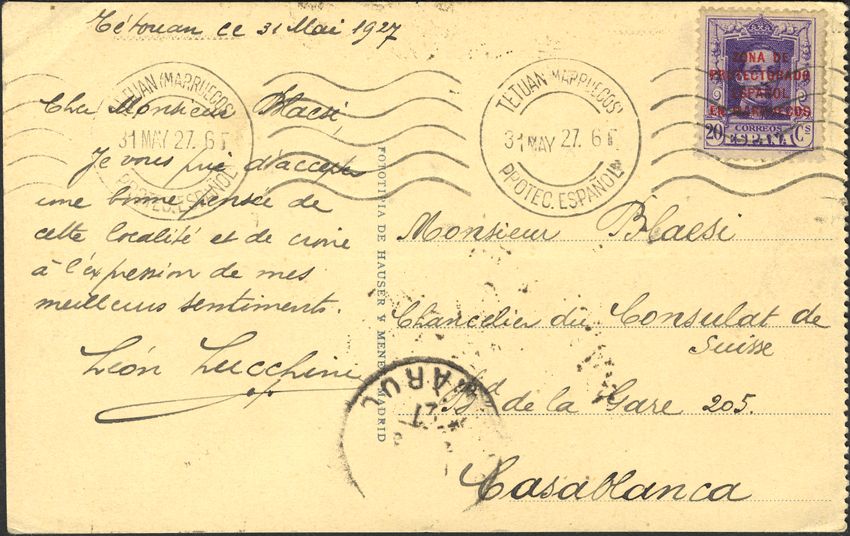 Tétouan ce 31 Mai 1927
TETUAN (MARRUECOS)
31 MAY 27. 6 T
PROTEC. ESPAÑOL
TETUAN (MARRUECOS)
31 MAY 27. 6 T
PROTEC. ESPAÑOL
ZONA DE
PROTECTORADO
ESPAÑOL
EN MARRUECOS
20 CORREOS Cs
ESPAÑA
Cher Monsieur Blaesi,
Je vous prie d'accepter
une bonne pensée de
cette localité et de croire
à l'expression de mes
meilleurs sentiments.
Léon Lucchini
FOTOTIPIA DE HAUSER Y MENET MADRID
Monsieur Blaesi
Chancelier du Consulat de
Suisse
Bd de la Gare 205.
Casablanca
MAROC
27